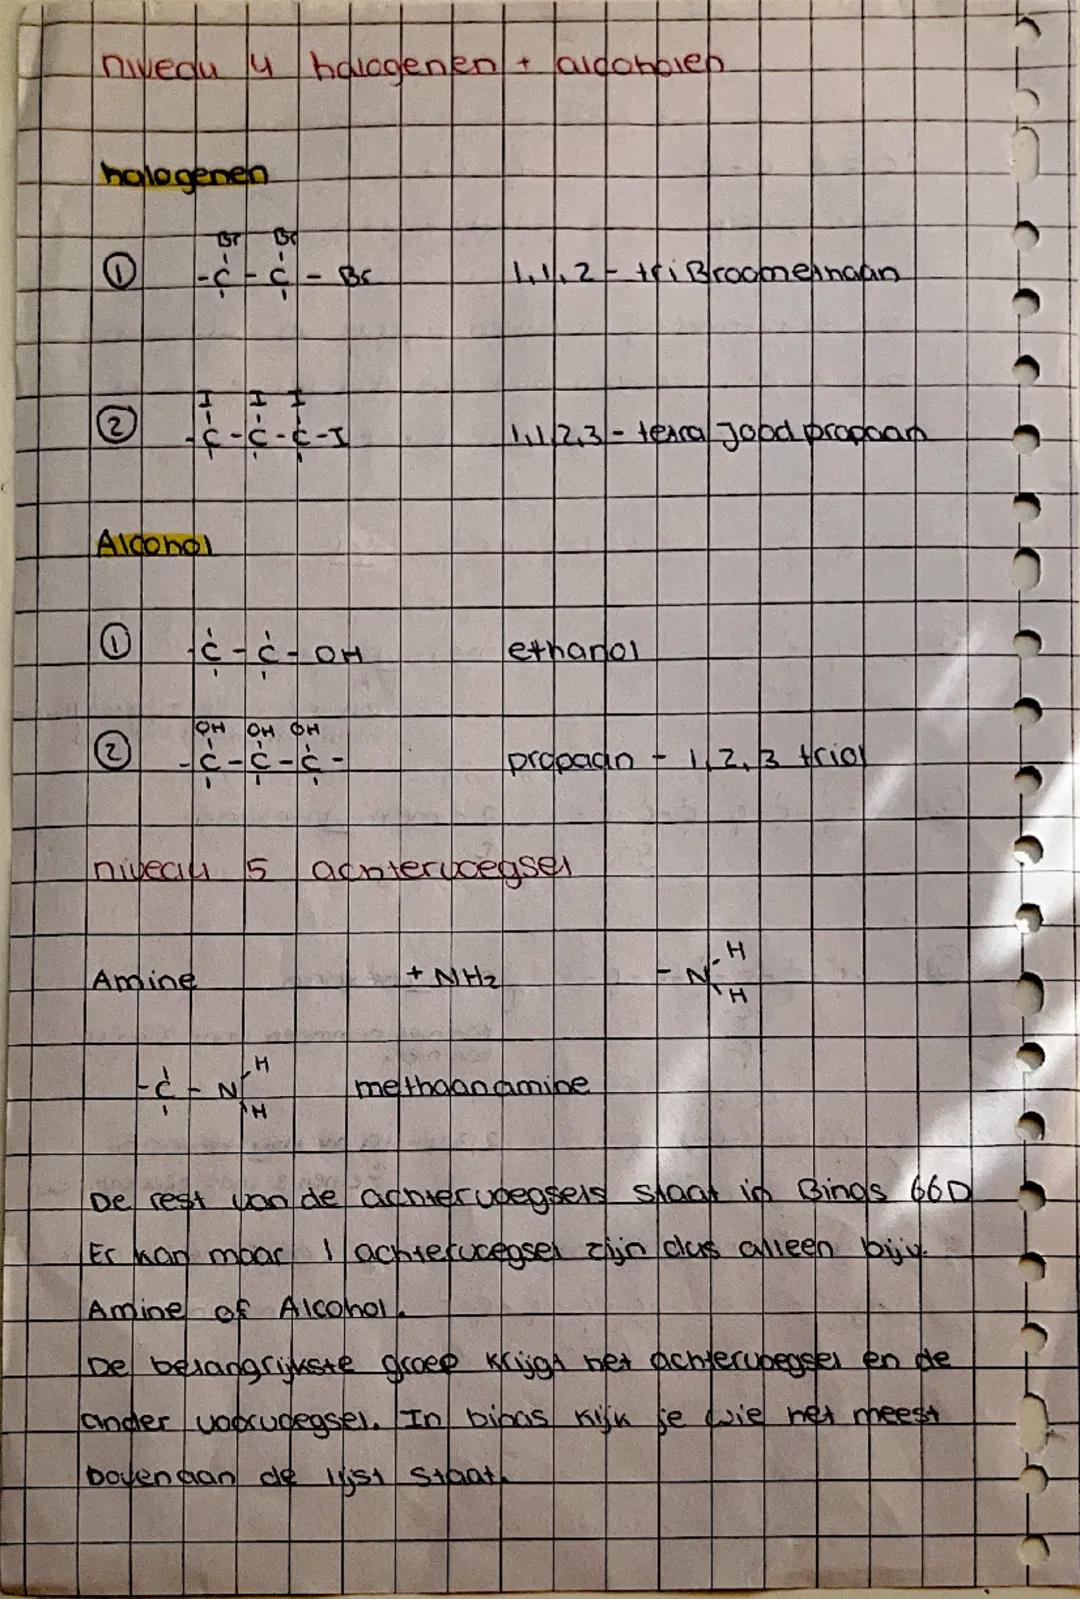 niveau 4 halogenen + alcoholen
halogenen
Br Br
① -C-C-Br 1,1,2-triBroomethaan
I I I
② -C-C-C-I 1,1,2,3-tetra Jood propaan
Alcohol
① -C-C-OH ethanol
OH OH OH
② -C-C-C- propaan - 1,2,3 triol
niveau 5 achtervoegsel
Amine + NH2 -N-H
H
-C-N-H methaanamine
H
De rest van de achtervoegsels staat in Binas 66D
Er kan maar 1 achtervoegsel zijn dus alleen bijv.
Amine of Alcohol.
De belangrijkste groep krijgt het achtervoegsel en de
ander voorvoegsel. In binas kijk je wie het meest
bovenaan de lijst staat.